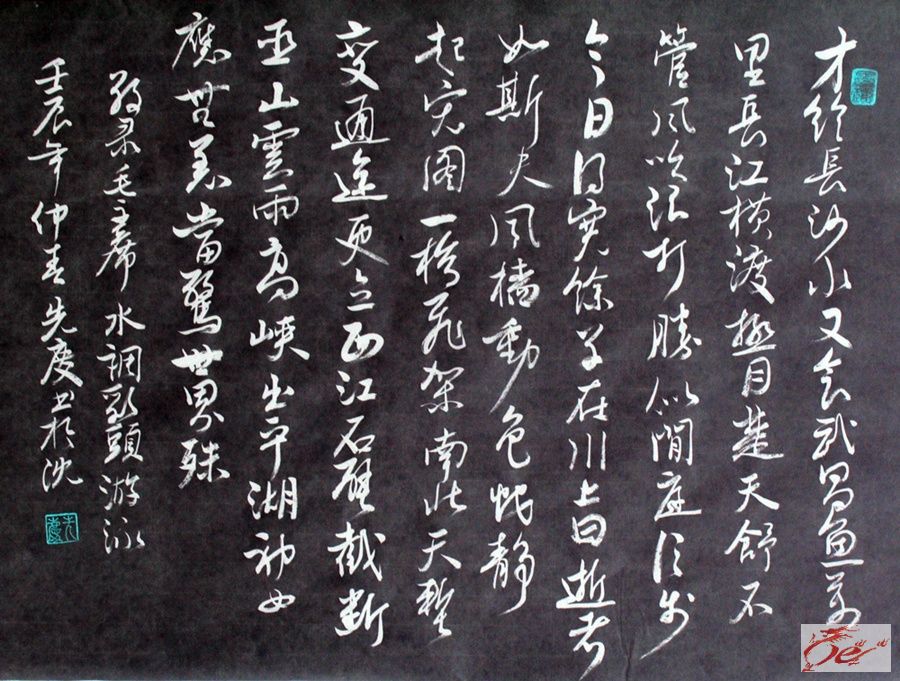 才飲長沙水又食武昌魚萬
里長江横渡極目楚天舒不
管風吹浪打勝似閒庭信步
今日得寬餘子在川上曰逝者
如斯夫風檣動龜蛇靜
起宏图一橋飛架南北天塹
變通途更立西江石壁截斷
巫山雲雨高峽出平湖神女
應無恙當驚世界殊
敬录毛主席水調歌頭游泳
壬辰年仲春先慶书於沈